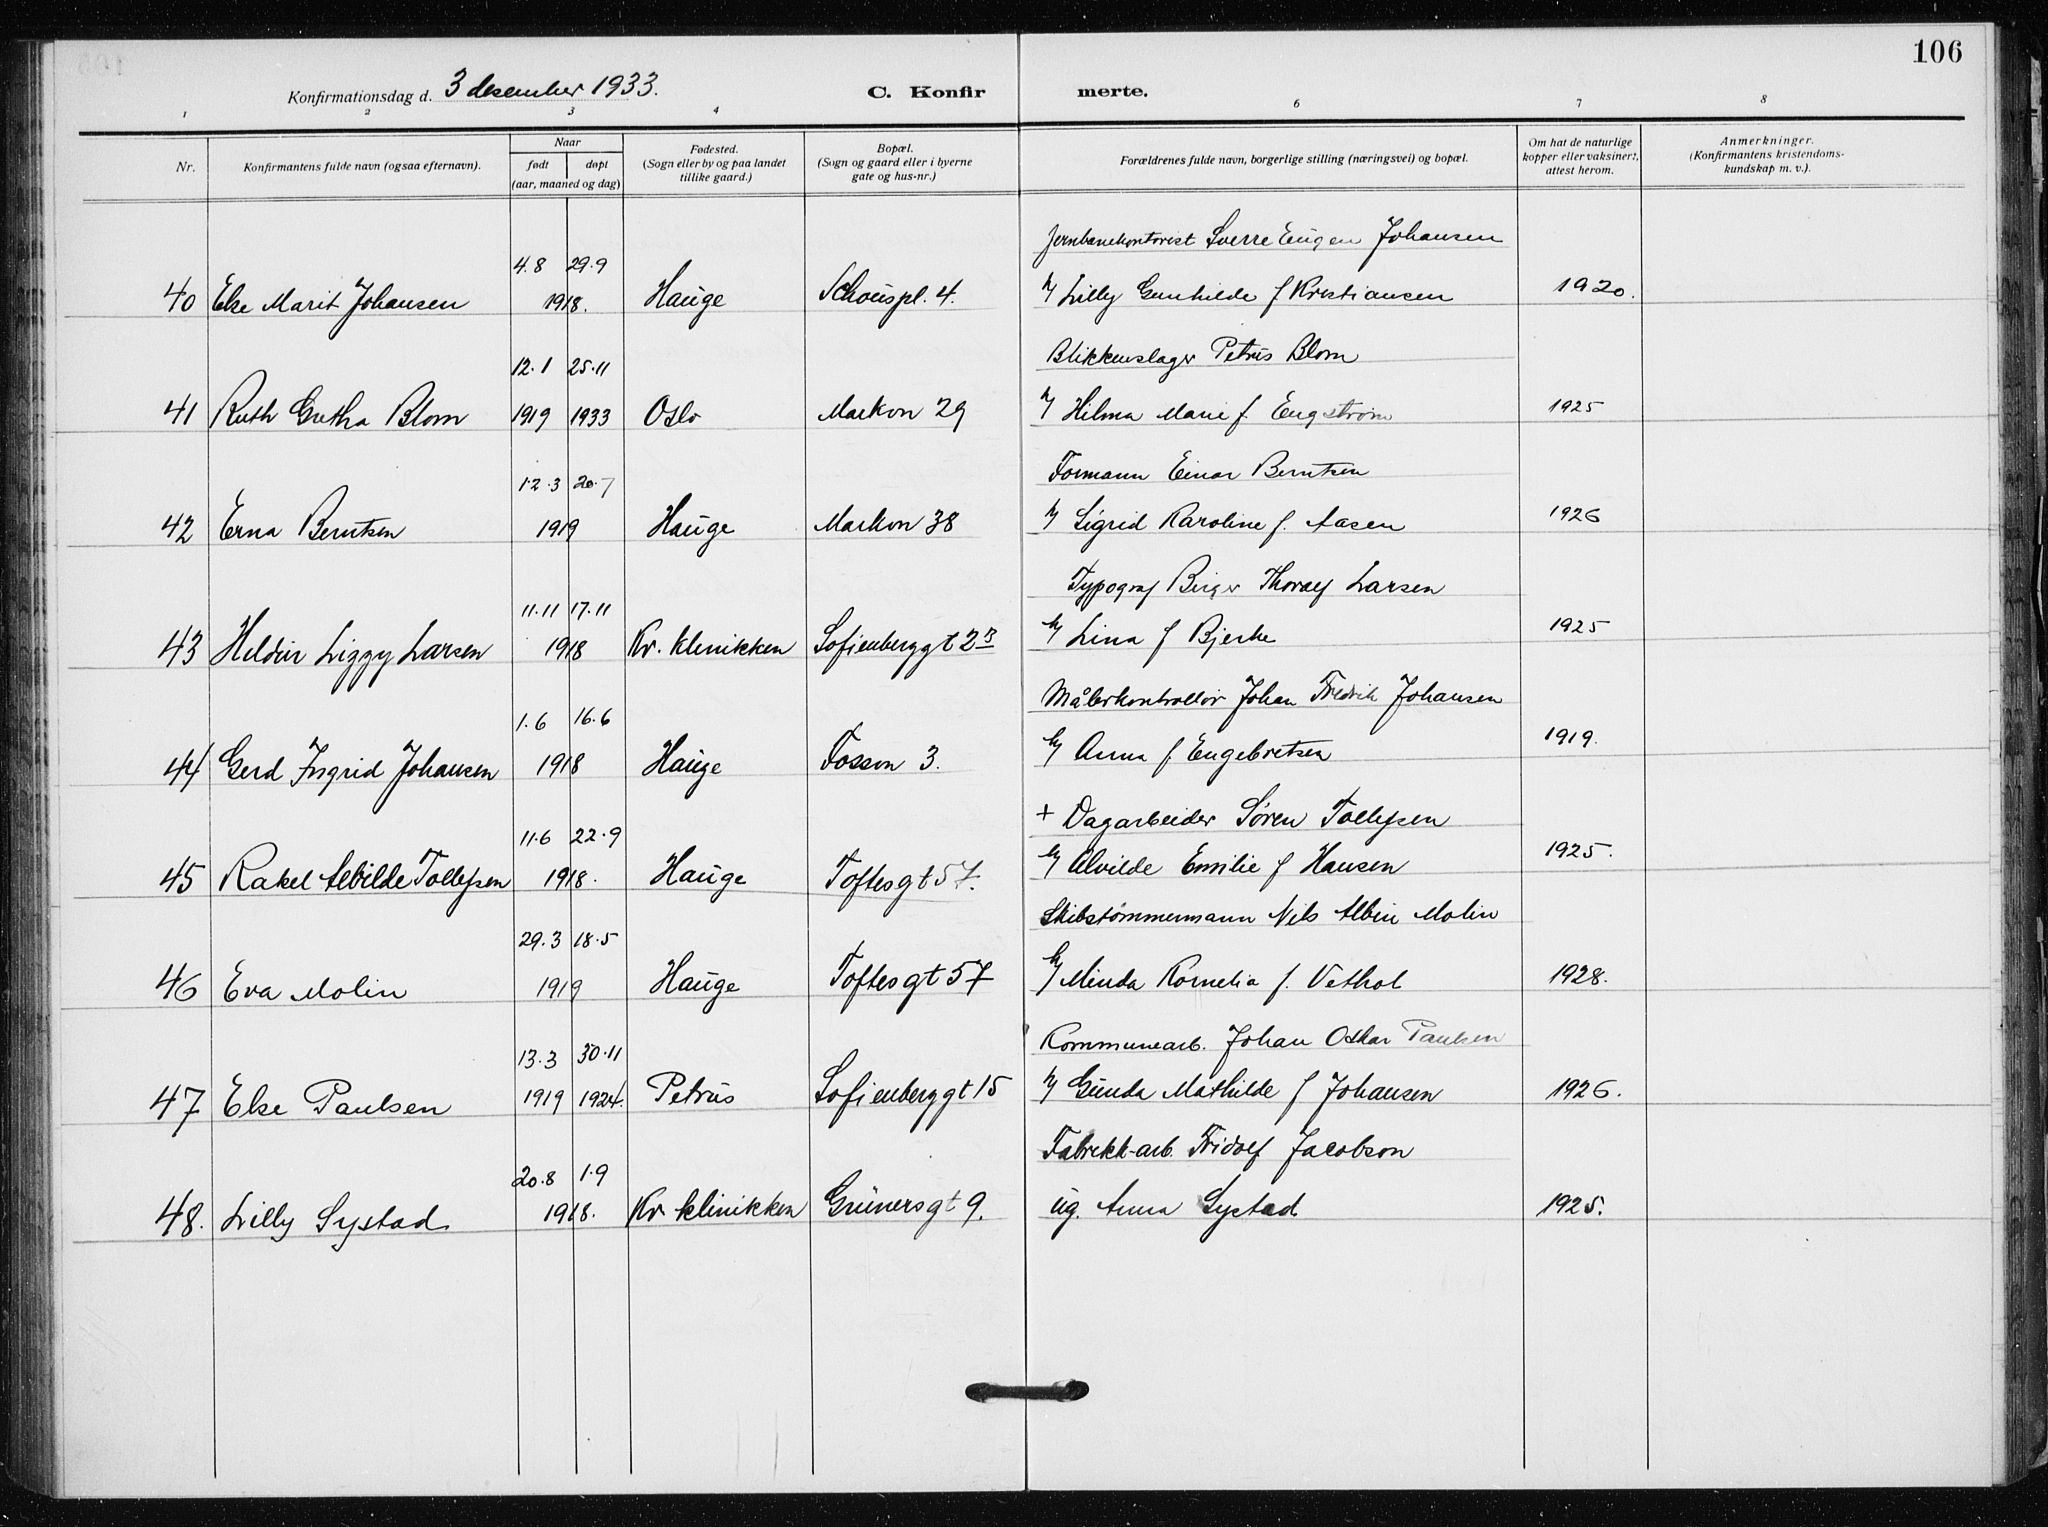 106
Konfirmationsdag d. 3 desember 1933.
C. Konfir merte.
1 2 3 4 6 7 8
Nr.
Konfirmantens fulde navn (ogsaa efternavn).
Naar
født døpt
(aar, maaned og dag)
Fødested.
(Sogn eller by og paa landet
tillike gaard.)
Bopæl.
(Sogn og gaard eller i byerne
gate og hus-nr.)
Forældrenes fulde navn, borgerlige stilling (næringsvei) og bopæl.
Om hat de naturlige
kopper eller vaksinert,
attest herom.
Anmerkninger.
(Konfirmantens kristendoms-
kundskap m. v.).
Jernbanekontorist Sverre Eugen Johansen
4.8 29.9
40 Else Marit Johansen 1918. Hauge Schouspl. 4. Lilly Gunhilde f Kristiansen 1920.
Blikkenslager Petrus Blom
12.1 25.11
41 Ruth Gretha Blom 1919 1933 Oslo Markvn 29 Hilma Marie f. Engstrøm 1925
Formann Einar Berntsen
12.3 20.7
42 Erna Berntsen 1919 Hauge Markvn 38 Sigrid Karoline f. Aasen 1926
Typograf Birger Thoralf Larsen
11.11 17.11
43 Hildur Liggy Larsen 1918 Kv. klinikken Sofienberggt 2 Lina f Bjerke 1925
Målerkontrollør Johan Fredrik Johansen
1.6 16.6
44 Gerd Ingrid Johansen 1918 Hauge Fossvn 3. Anna f. Engebretsen 1919.
+ Dagarbeider Søren Tollefsen
11.6 22.9
45 Rakel Alvilde Tollefsen 1918. Hauge Toftesgt 57. Alvilde Emilie f Hansen 1925.
Skibstømmermann Nils Albin Molin
29.3 18.5
46 Eva Molin 1919 Hauge Toftesgt 57 Minda Kornelia f. Vethol 1928.
Kommunearb. Johan Oskar Paulsen
13.3 30.11
47 Else Paulsen 1919 1924. Petrus Sofienberggt 15 Gunda Mathilde f Johansen 1926.
Fabrikk-arb. Fridolf Jacobson
20.8 1.9
48. Lilly Systad 1918. Kv klinikken Grünersgt 9. ug. Anna Systad 1925.